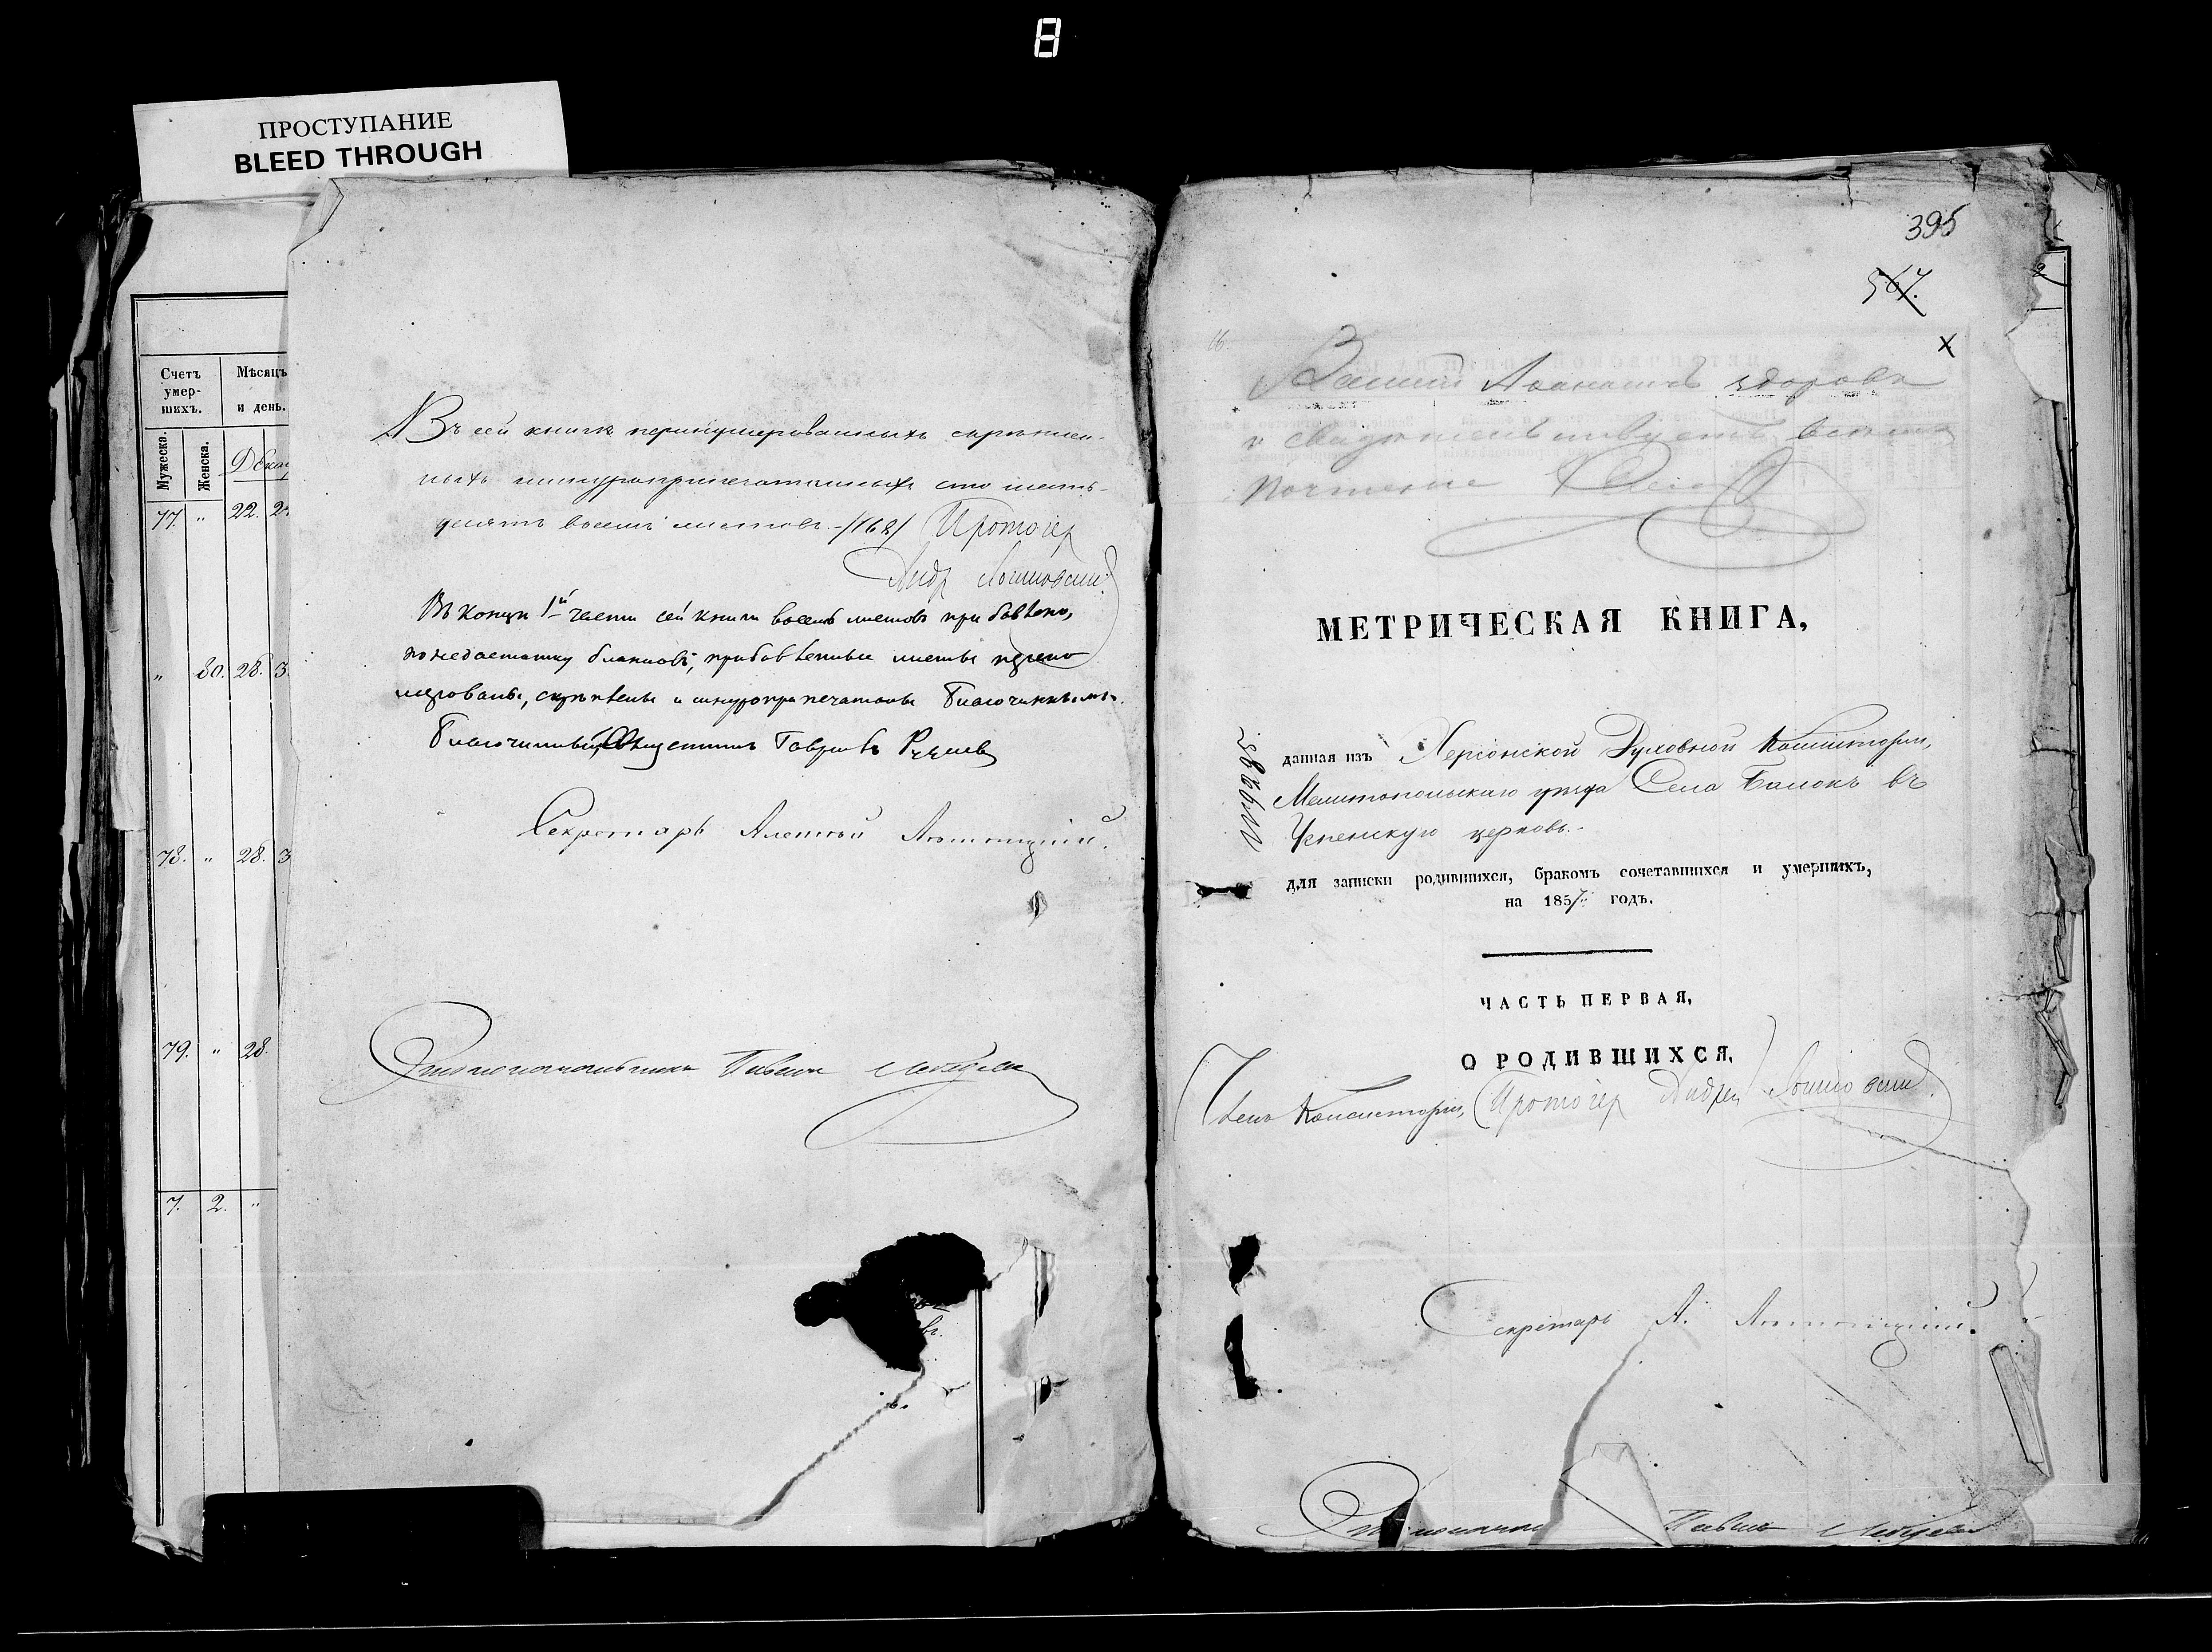 8
ПРОСТУПАНИЕ
BLEED THROUGH
Счетъ умер- шихъ.
Мѣсяцъ и день.
Мужеска.
Женска.
77. " 22.
" 80. 28. 3
78. " 28. 3
79. " 28.
7. 2. "
Въ сей книгѣ перенумерованныхъ скрѣплен-
ныхъ шнуроприпечатанныхъ сто шесть-
десятъ восемь листовъ.-/168/ Протоіер
Андр
Въ концѣ 1й части сей книги восемь листовъ прибавлено,
по недостатку бланковъ, прибавленные листы перено
мерованы, скрѣплены и шнуроприпечатаны благочиннымъ.
Благочинный Гавріилъ
Секретарь
Столоначальникъ Павелъ
395
567.
х
16.
здоровъ
и свидѣтельствуетъ
почтеніе
МЕТРИЧЕСКАЯ КНИГА,
данная изъ Херсонской Духовной Консисторіи,
Мелитопольскаго уѣзда Села Балокъ въ
Успенскую церковь.-
для записки родившихся, бракомъ сочетавшихся и умершихъ,
на 1857 годъ.
ЧАСТЬ ПЕРВАЯ,
О РОДИВШИХСЯ,
Членъ Консисторіи, Протоіер Андрей
Секретарь А.
Павелъ